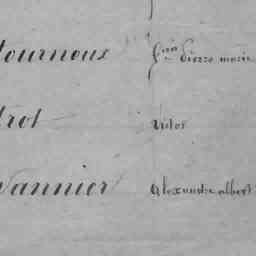 ournoux fran Pierre marie
rot Victor
vannier Alexandre albert